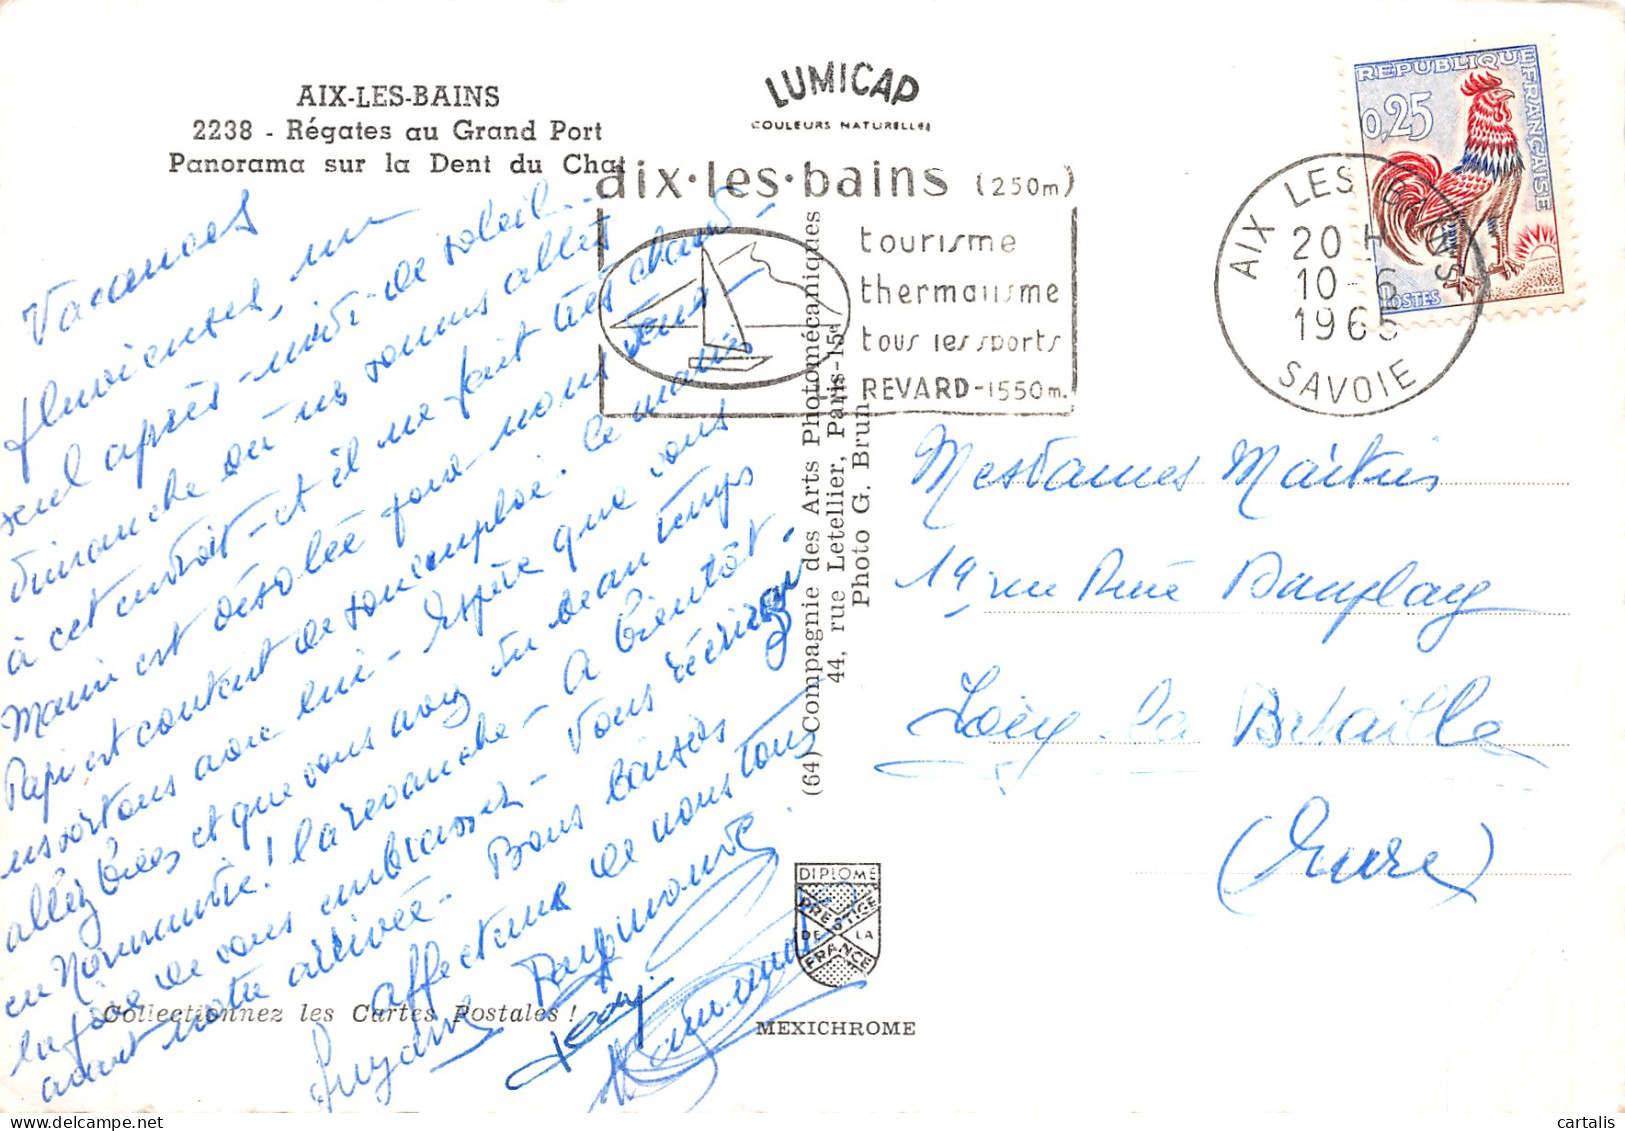 AIX-LES-BAINS
2238 - Régates au Grand Port
Panorama sur la Dent du Chat
LUMICAP
COULEURS NATURELLES
aix·les·bains (250m)
tourisme
thermalisme
tous les sports
REVARD-1550m.
AIX LES BAINS
20 H
10-6
1965
SAVOIE
REPUBLIQUE FRANÇAISE
0,25
POSTES
DECARIS
Vacances
pluvieuses, un
seul après-midi de soleil
dimanche où nous sommes allés
à cet endroit - et il ne fait très chaud -
Mami est désolée pour nous tous -
Papi est content de son emploi. Ce matin
nous sortons avec lui - Espère que vous
allez bien et que vous avez du beau temps
en Normandie! la revanche - A bientôt.
la joie de vous embrasser - Vous écrirai
avant notre arrivée - Bons baisers
affectueux de nous tous
Raymonde
Raymonde
(64) Compagnie des Arts Photomécaniques
44, rue Letellier, Paris-15e
Photo G. Brun
Mesdames Martin
19, rue René
la Bataille
(Eure)
DIPLOME
PRESTIGE
DE LA
FRANCE
Collectionnez les Cartes Postales !
MEXICHROME
cartalis